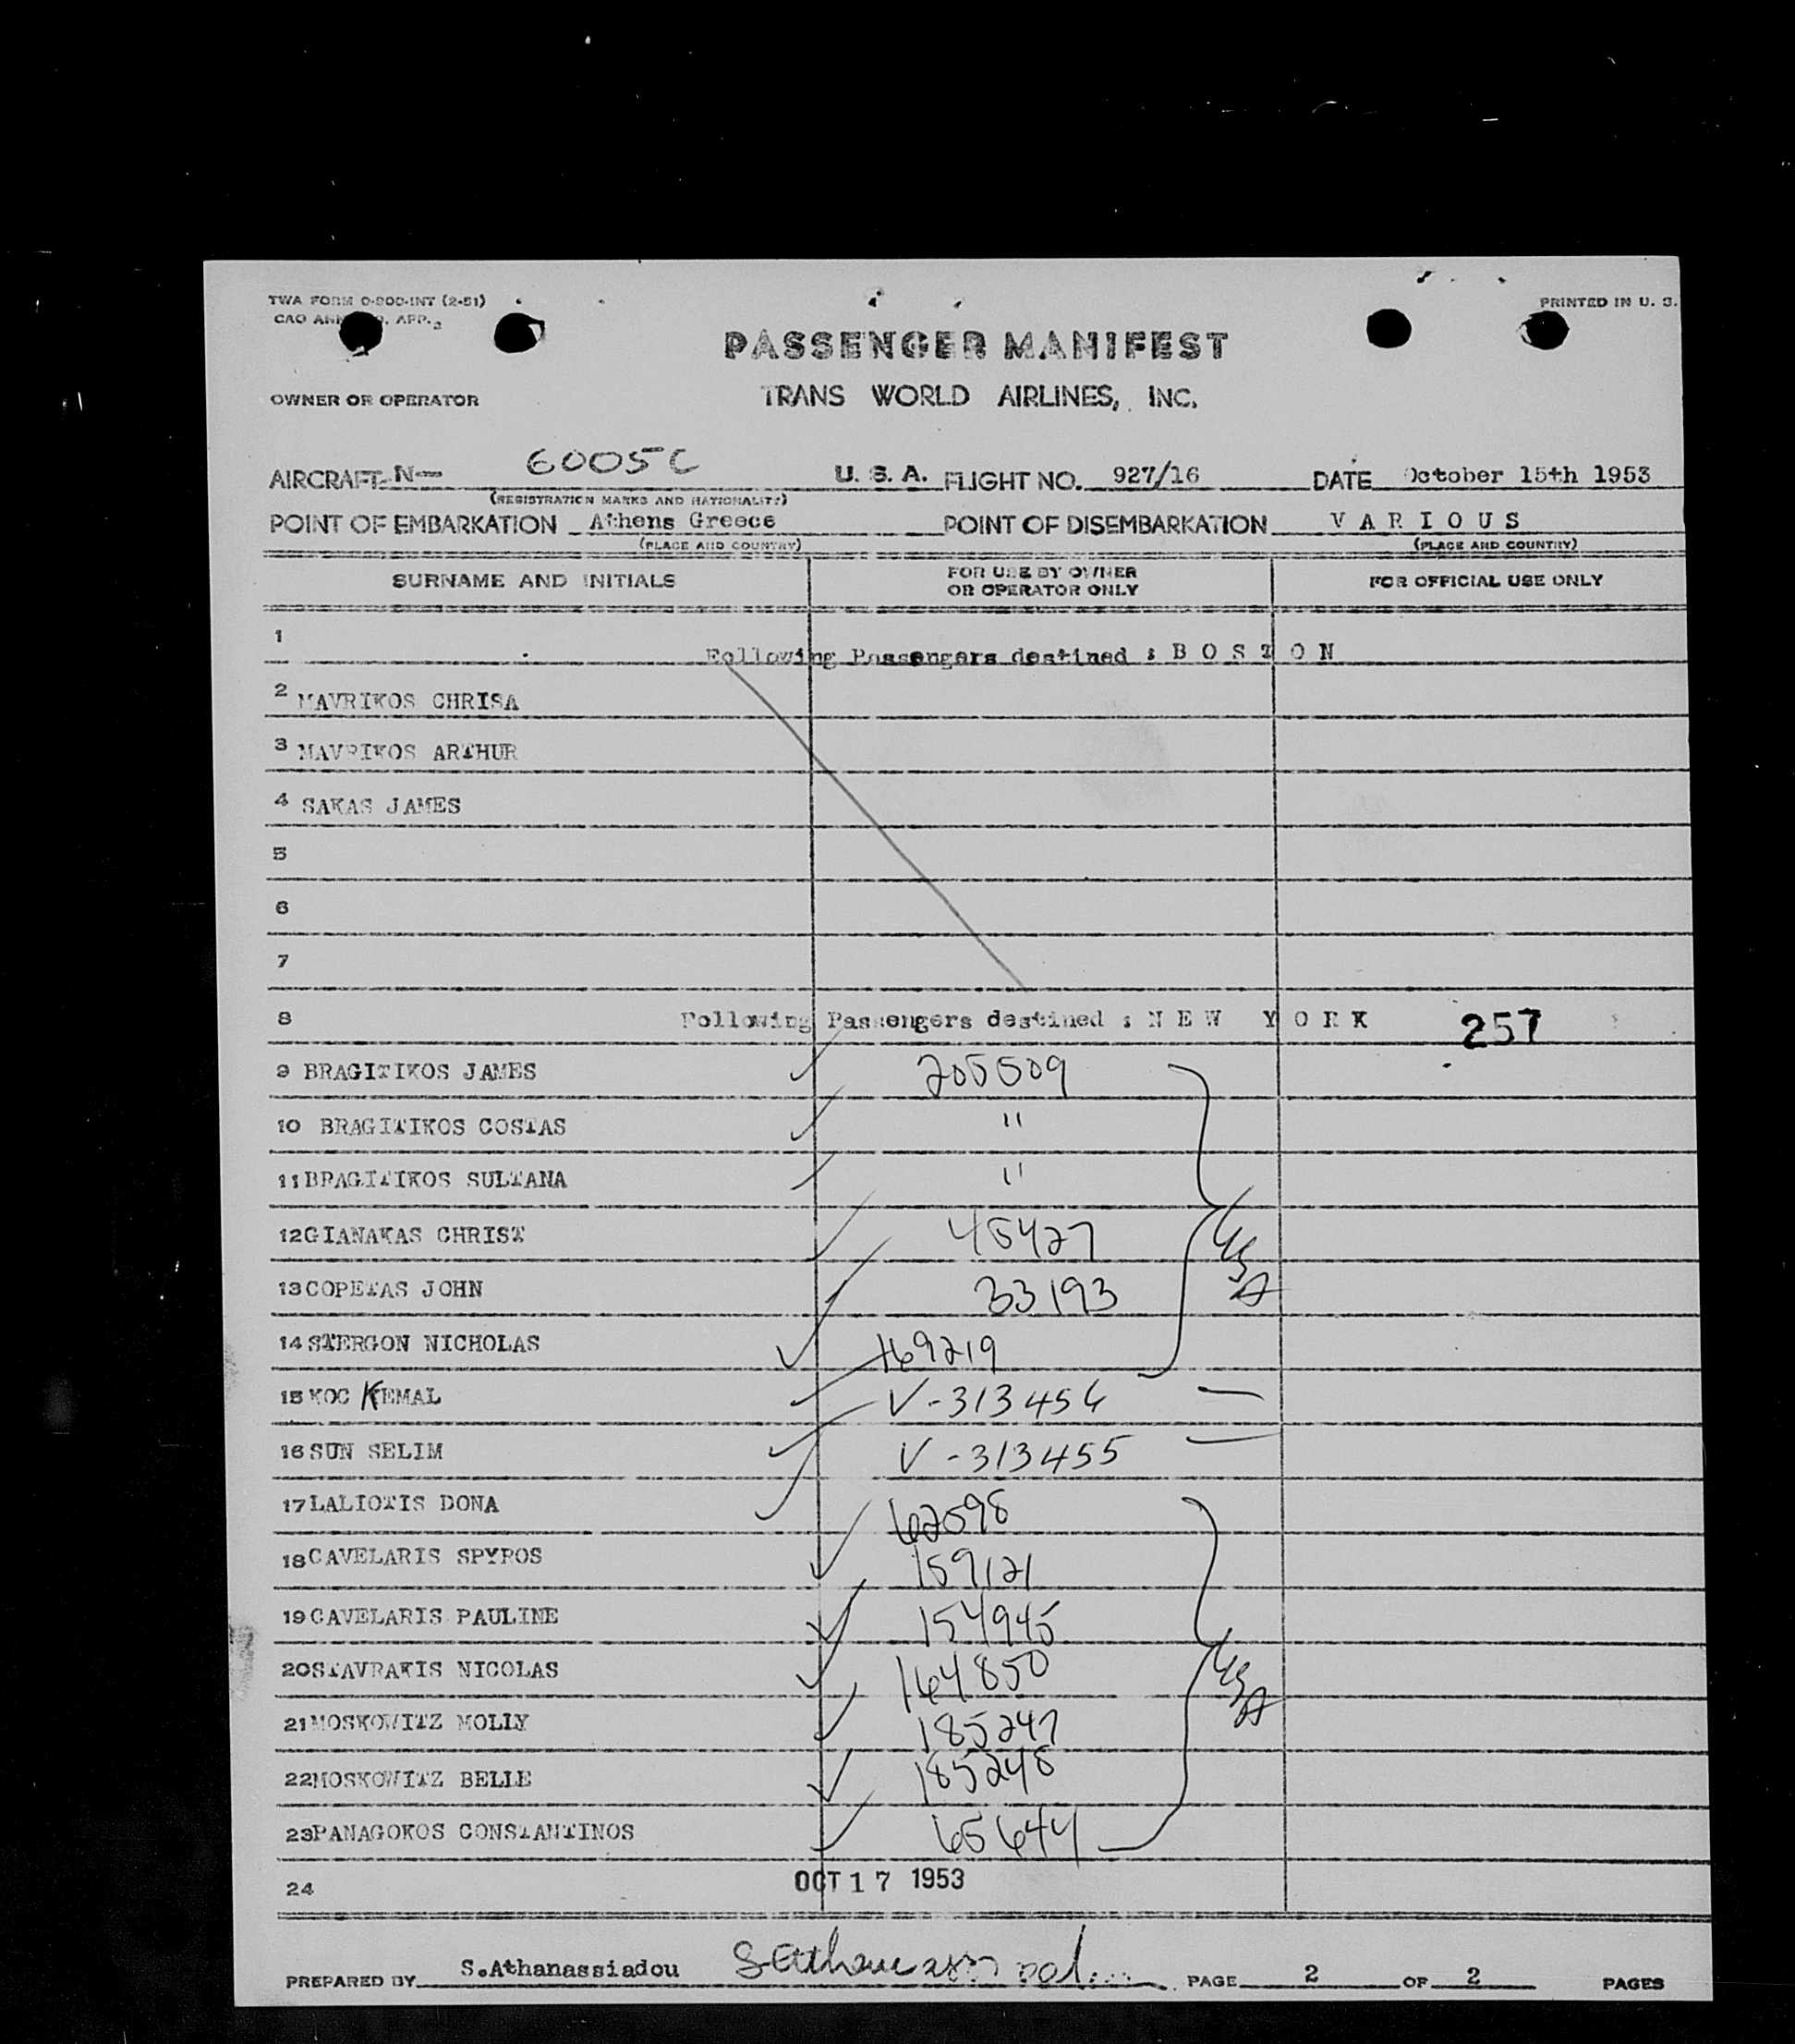 TWA FORM O-900-INT (2-51)
PRINTED IN U. S.
PASSENGER MANIFEST
OWNER OR OPERATOR
TRANS WORLD AIRLINES, INC.
AIRCRAFT N- 6005C U. S. A. FLIGHT NO. 927/16 DATE October 15th 1953
(REGISTRATION MARKS AND NATIONALITY)
POINT OF EMBARKATION Athens Greece POINT OF DISEMBARKATION V A R I O U S
(PLACE AND COUNTRY) (PLACE AND COUNTRY)
SURNAME AND INITIALS FOR USE BY OWNER OR OPERATOR ONLY FOR OFFICIAL USE ONLY
1 Following Passengers destined : B O S T O N
2 MAVRIKOS CHRISA
3 MAVRIKOS ARTHUR
4 SAKAS JAMES
5
6
7
8 Following Passengers destined : N E W Y O R K 257
9 BRAGITIKOS JAMES 205509
10 BRAGITIKOS COSTAS "
11 BRAGITIKOS SULTANA "
12 GIANAKAS CHRIST 45427
USA
13 COPETAS JOHN 33193
14 STERGON NICHOLAS 169219
15 KOC KEMAL V-313456
16 SUN SELIM V-313455
17 LALIOTIS DONA 62598
18 CAVELARIS SPYROS 159121
19 CAVELARIS PAULINE 154945
20 STAVRAKIS NICOLAS 164850
USA
21 MOSKOWITZ MOLLY 185247
22 MOSKOWITZ BELLE 185248
23 PANAGOKOS CONSTANTINOS 65644
24 OCT 17 1953
PREPARED BY S.Athanassiadou PAGE 2 OF 2 PAGES